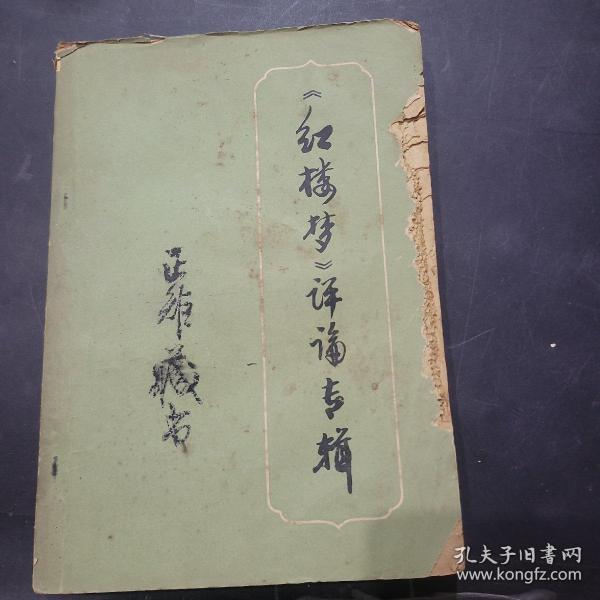 《红楼梦》评论专辑
藏书
孔夫子旧書网
www.kongfz.com